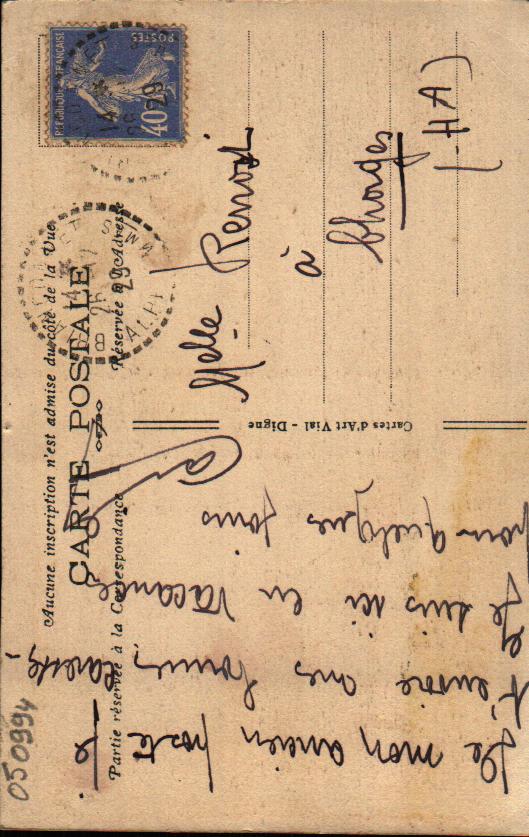 Aucune inscription n'est admise du côté de la Vue
CARTE POSTALE
Partie réservée à la Correspondance
Réservée à l'Adresse
REPUBLIQUE FRANÇAISE
POSTES
40c
14
26
29
Melle Renoux
à
Chorges
(H A)
Cartes d'Art Vial - Digne
De mon ancien poste je
t'envoie mes bonnes
Je suis ici en vacances
pour quelques jours
050994